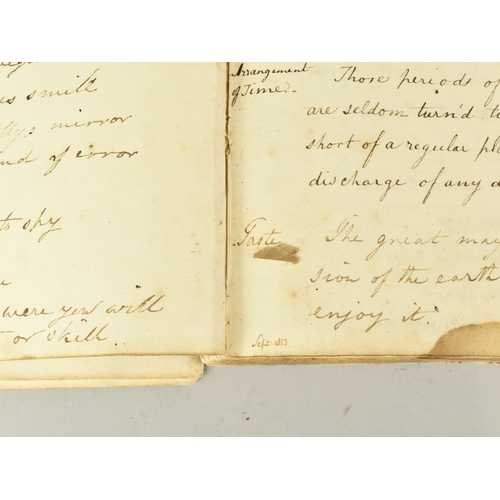 smile
mirror
of error
to spy
were you will
or skill.
Arrangement
of Time.
Those periods of
are seldom turn'd to
short of a regular
discharge of any
Taste
The great may
sion of the earth
enjoy it.
Sept. 1813